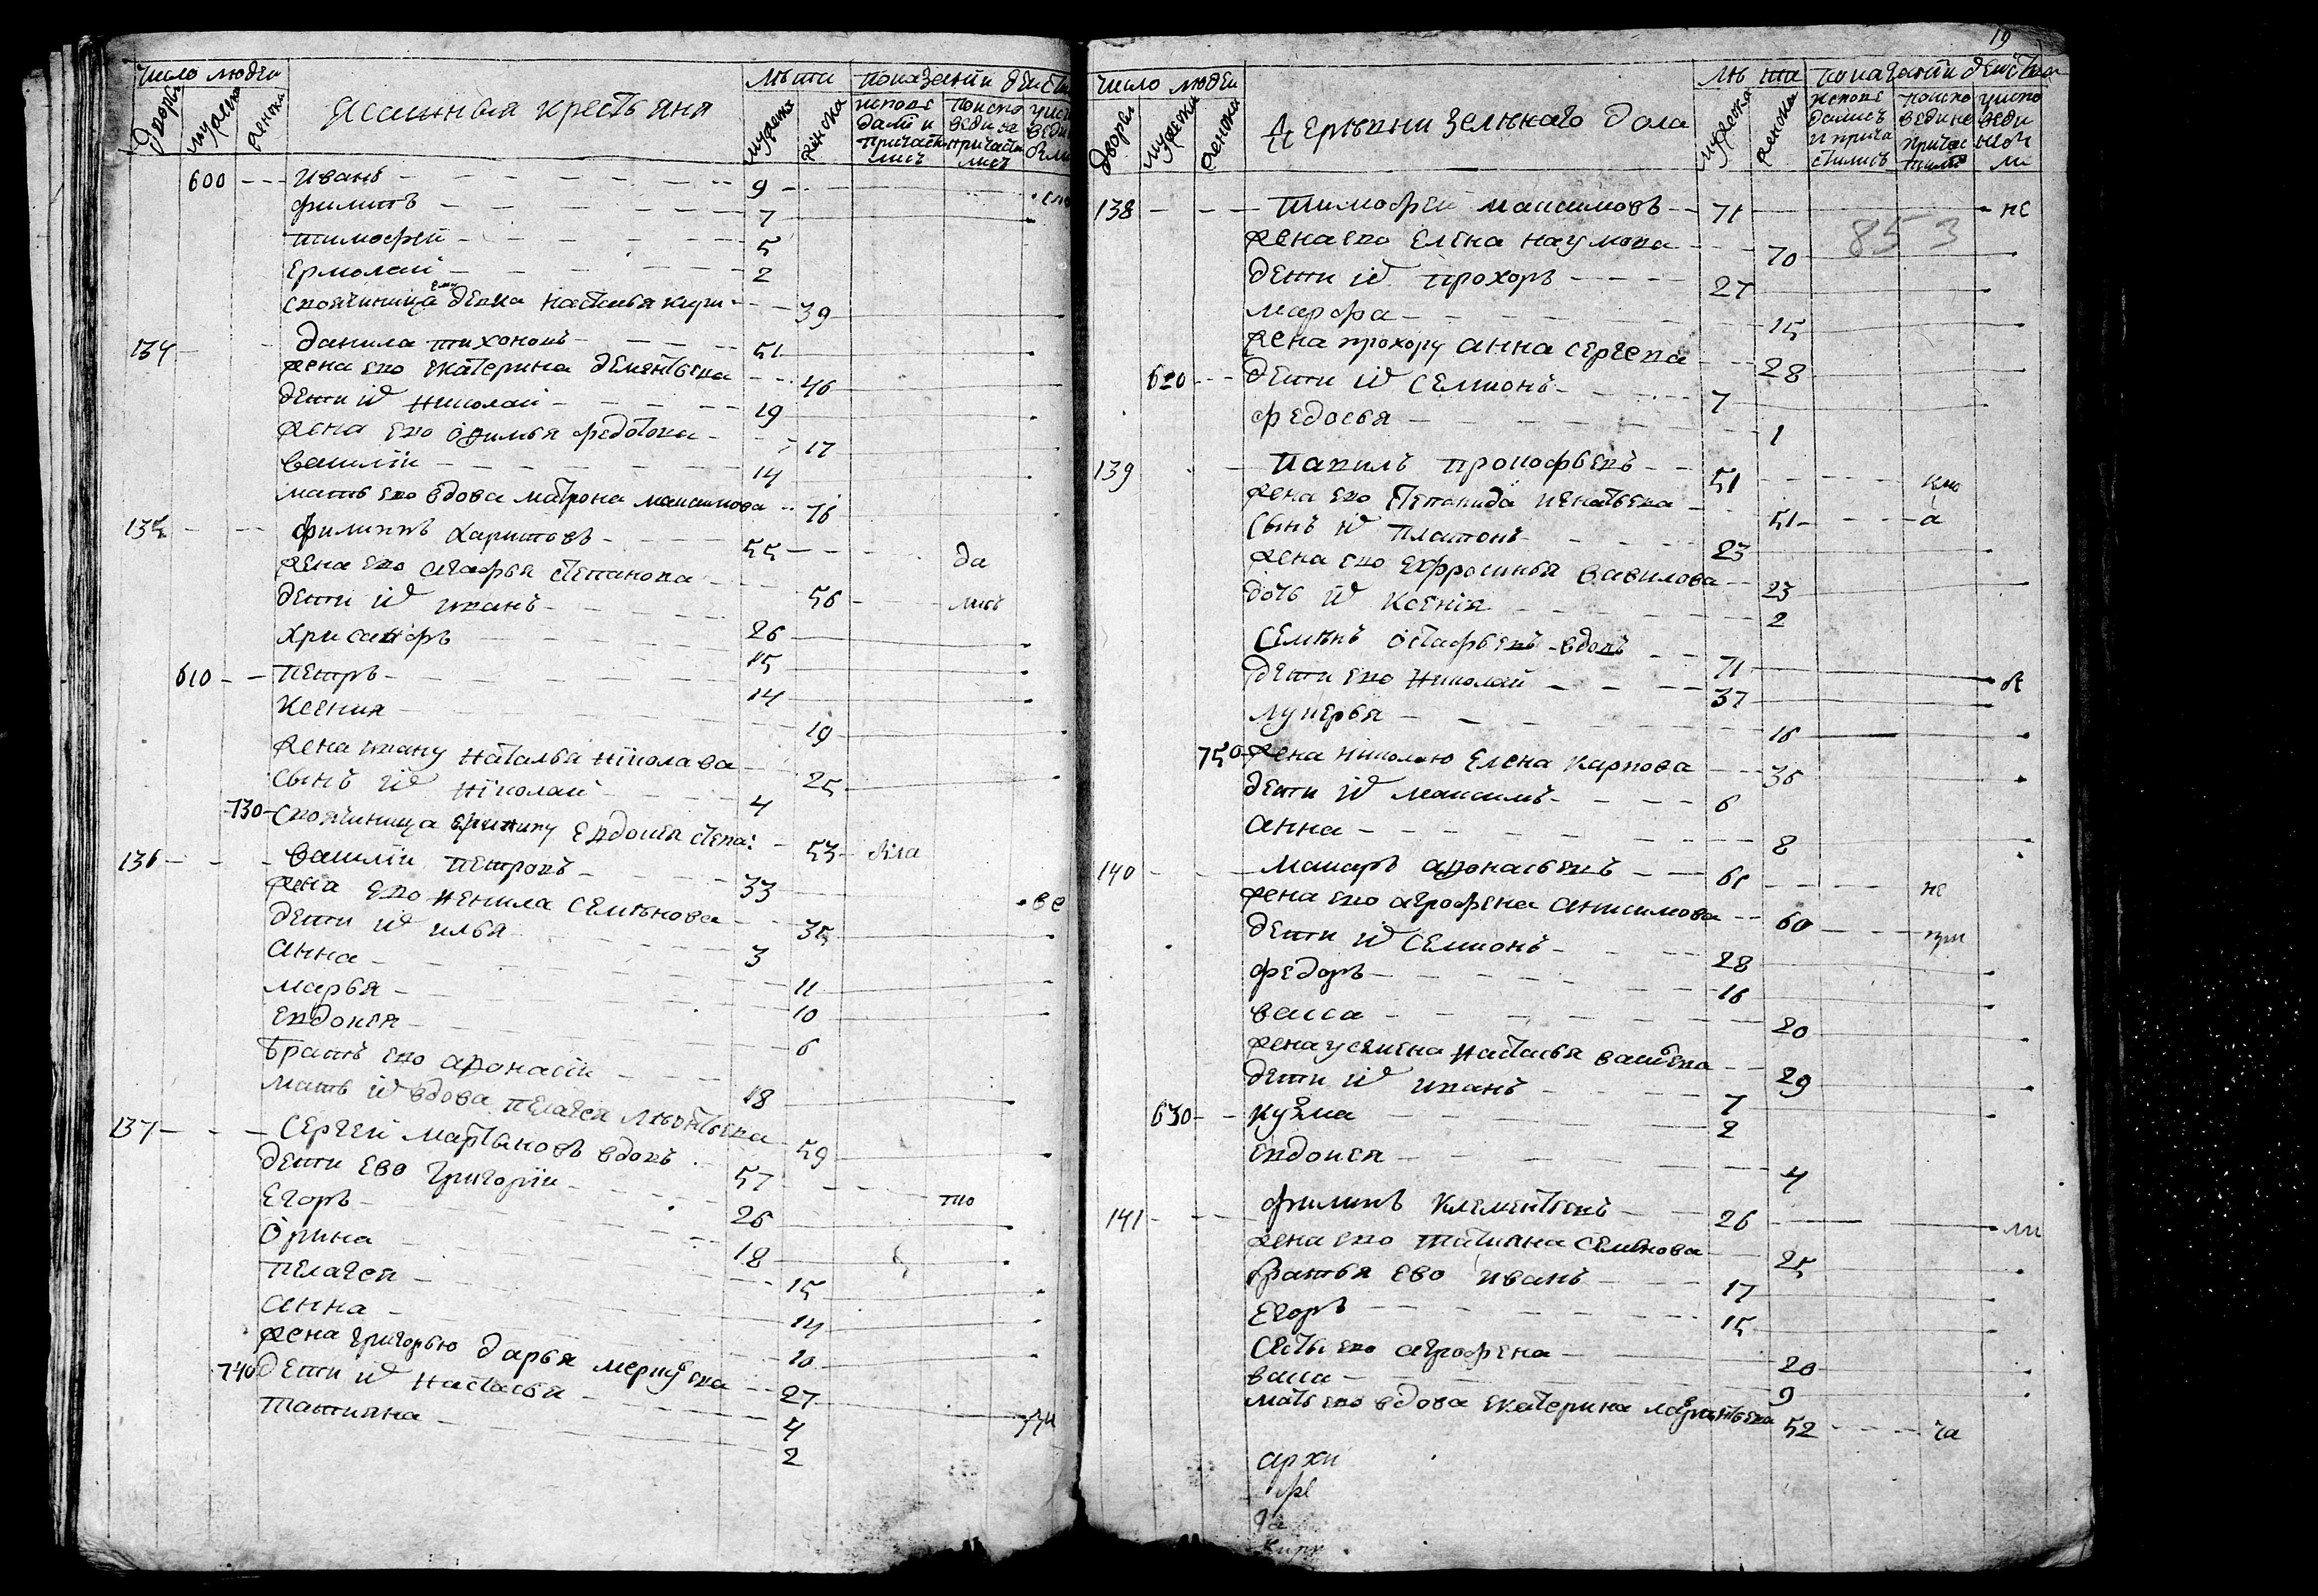 число людеи
дворы
мужеска
женска
Ясашныя крестьяня
лѣта
мужеска
женска
показания деист
600 Иванъ 9
Филипъ 7
Тимофеи 5
Ермолаи 2
своячиница ему девка Настасья 39
134 Данила Тихоновъ 51
жена ево Екатерина Дементьева 46
дети их Николаи 19
жена ево Федотова 17
Василiи 14
мать ево вдова Матрона Максимова 76
135 Филиппъ Харитовъ 55 да
жена ево Агафья Степанова 56 лись
дети их Иванъ 26
Хрисанфъ 15
610 Петръ 14
Ксения 19
жена Ивану Наталья Нiколава 25
сынъ их Нiколаи 4
730 своячиница Евдокiя Степа: 53
136 Василiи Петровъ 33 ве
жена ево Ненила Семѣнова 35
дети их Илья 3
Анна 11
Марья 10
Евдокея 6
братъ ево Афонасiи 18
мать их вдова Пелагея 59
137 Сергеи Мартыновъ вдовъ 57
дети ево Григорiи 26
Егоръ 18
Орина 15
Пелагея 14
Анна 10
жена Григорью Дарья 27
740 дети их Настасья 4
Татияна 2
19
число людеи
дворы
мужеска
женска
Деревни Зелѣнаго Дола
лѣта
мужеска
женска
показании деиства
исповедались и причастились
853
138 Тимофеи Максимовъ 71 не
жена ево Елена Наумова 70
дети их Прохоръ 27
Марфа 15
жена Прохору Анна Сергеева 28
620 дети их Семионъ 7
Федосья 1
139 Павилъ Прокофьевъ 51
жена ево Степанида Игнатьева 51 а
сынъ их Платонъ 23
жена ево Ефросинья Вавилова 23
дочь их Ксенiя 2
Семѣнъ Остафьевъ вдовъ 71
дети ево Николаи 37
Лукерья 16
750 жена Николаю Елена Карпова 36
дети их Максимъ 6
Анна 8
140 Макаръ Афонасьевъ 61 не
жена ево Аграфена Анисимова 60 при
дети их Семионъ 28
Федоръ 16
Васса 20
жена у Семена Настасья Васильева 29
дети их Иванъ 7
630 Кузма 2
Евдокея 4
141 Филипъ Клементьевъ 26 ли
жена ево Татияна Семѣнова 25
братья ево Иванъ 17
Егоръ 15
сестры ево Аграфена 20
Васа 9
мать ево вдова Екатерина 52 ча
архи